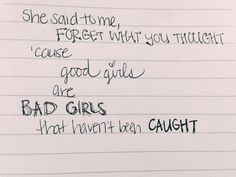 She said to me,
FORGET WHAT YOU THOUGHT
'cause
good girls
are
BAD GIRLS
that haven't been CAUGHT